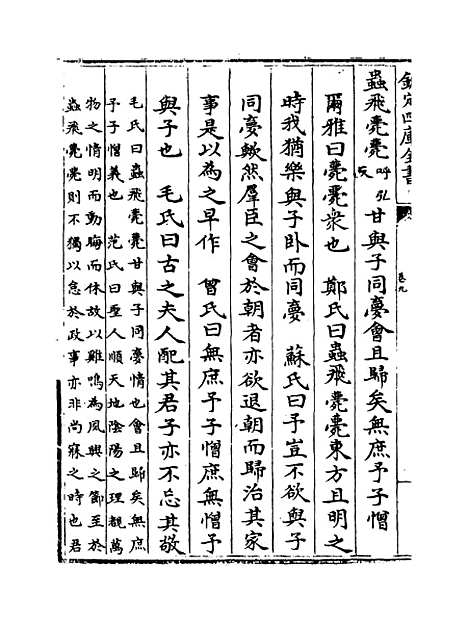 欽定四庫全書
卷九
蟲飛薨薨呼弘反甘與子同夢會且歸矣無庶予子憎
爾雅曰薨薨衆也 鄭氏曰蟲飛薨薨東方且明之
時我猶樂與子卧而同夢 蘇氏曰予豈不欲與子
同夢歟然羣臣之會於朝者亦欲退朝而歸治其家
事是以為之早作 曾氏曰無庶予子憎庶無憎予
與子也 毛氏曰古之夫人配其君子亦不忘其敬
毛氏曰蟲飛薨薨甘與子同夢情也會且歸矣無庶
予子憎義也 范氏曰聖人順天地陰陽之理觀萬
物之情明而動晦而休故以雞鳴為夙興之節至於
蟲飛薨薨則不獨以怠於政事亦非尚寐之時也君